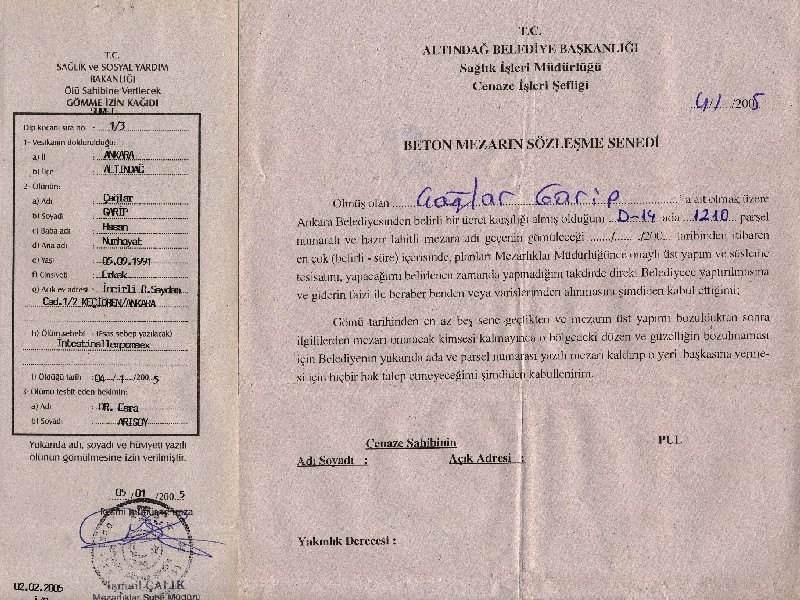 T.C.
SAĞLIK ve SOSYAL YARDIM
BAKANLIĞI
Ölü Sahibine Verilecek
GÖMME İZİN KAĞIDI
Dip koçanı sıra no. : 1/3
1- Vesikanın doldurulduğu:
a) İl : ANKARA
b) İlçe : ALTINDAĞ
2- Ölünün:
a) Adı : Çağlar
b) Soyadı : GARİP
c) Baba adı : Hasan
d) Ana adı : Nurhayat
e) Yaşı : 05.09.1991
f) Cinsiyeti : Erkek
g) Açık ev adresi : İncirli R.Saydam
Cad.1/2 KEÇİÖREN/ANKARA
h) Ölüm sebebi : (Esas sebep yazılacak)
ı) Öldüğü tarih : 04 / 1 /200 5
3- Ölümü tesbit eden hekimin:
a) Adı : DR. Esra
b) Soyadı : ARISOY
Yukarıda adı, soyadı ve hüviyeti yazılı
ölünün gömülmesine izin verilmiştir.
05/01/2005
İsmail ÇALIK
Mezarlıklar Şube Müdürü
02.02.2005
T.C.
ALTINDAĞ BELEDİYE BAŞKANLIĞI
Sağlık İşleri Müdürlüğü
Cenaze İşleri Şefliği
4/1/2005
BETON MEZARIN SÖZLEŞME SENEDİ
Ölmüş olan Çağlar Garip 'a ait olmak üzere
Ankara Belediyesinden belirli bir ücret karşılığı almış olduğum D-14 ada 1210 parsel
numaralı ve hazır lahitli mezara adı geçenin gömüleceği ....../....../200... tarihinden itibaren
en çok (belirli - süre) içerisinde, planları Mezarlıklar Müdürlüğünce onaylı üst yapım ve süsleme
tesisatını, yapacağımı belirlenen zamanda yapmadığım takdirde direkt Belediyece yaptırılmasına
ve giderin faizi ile beraber benden veya varislerimden alınmasını şimdiden kabul ettiğimi;
Gömü tarihinden en az beş sene geçtikten ve mezarın üst yapımı bozulduktan sonra
ilgililerden mezarı onaracak kimsesi kalmayınca o bölgedeki düzen ve güzelliğin bozulmaması
için Belediyenin yukarıda ada ve parsel numarası yazılı mezarı kaldırıp o yeri başkasına verme-
si için hiçbir hak talep etmeyeceğimi şimdiden kabullenirim.
Cenaze Sahibinin
PUL
Adı Soyadı : Açık Adresi :
Yakınlık Derecesi :